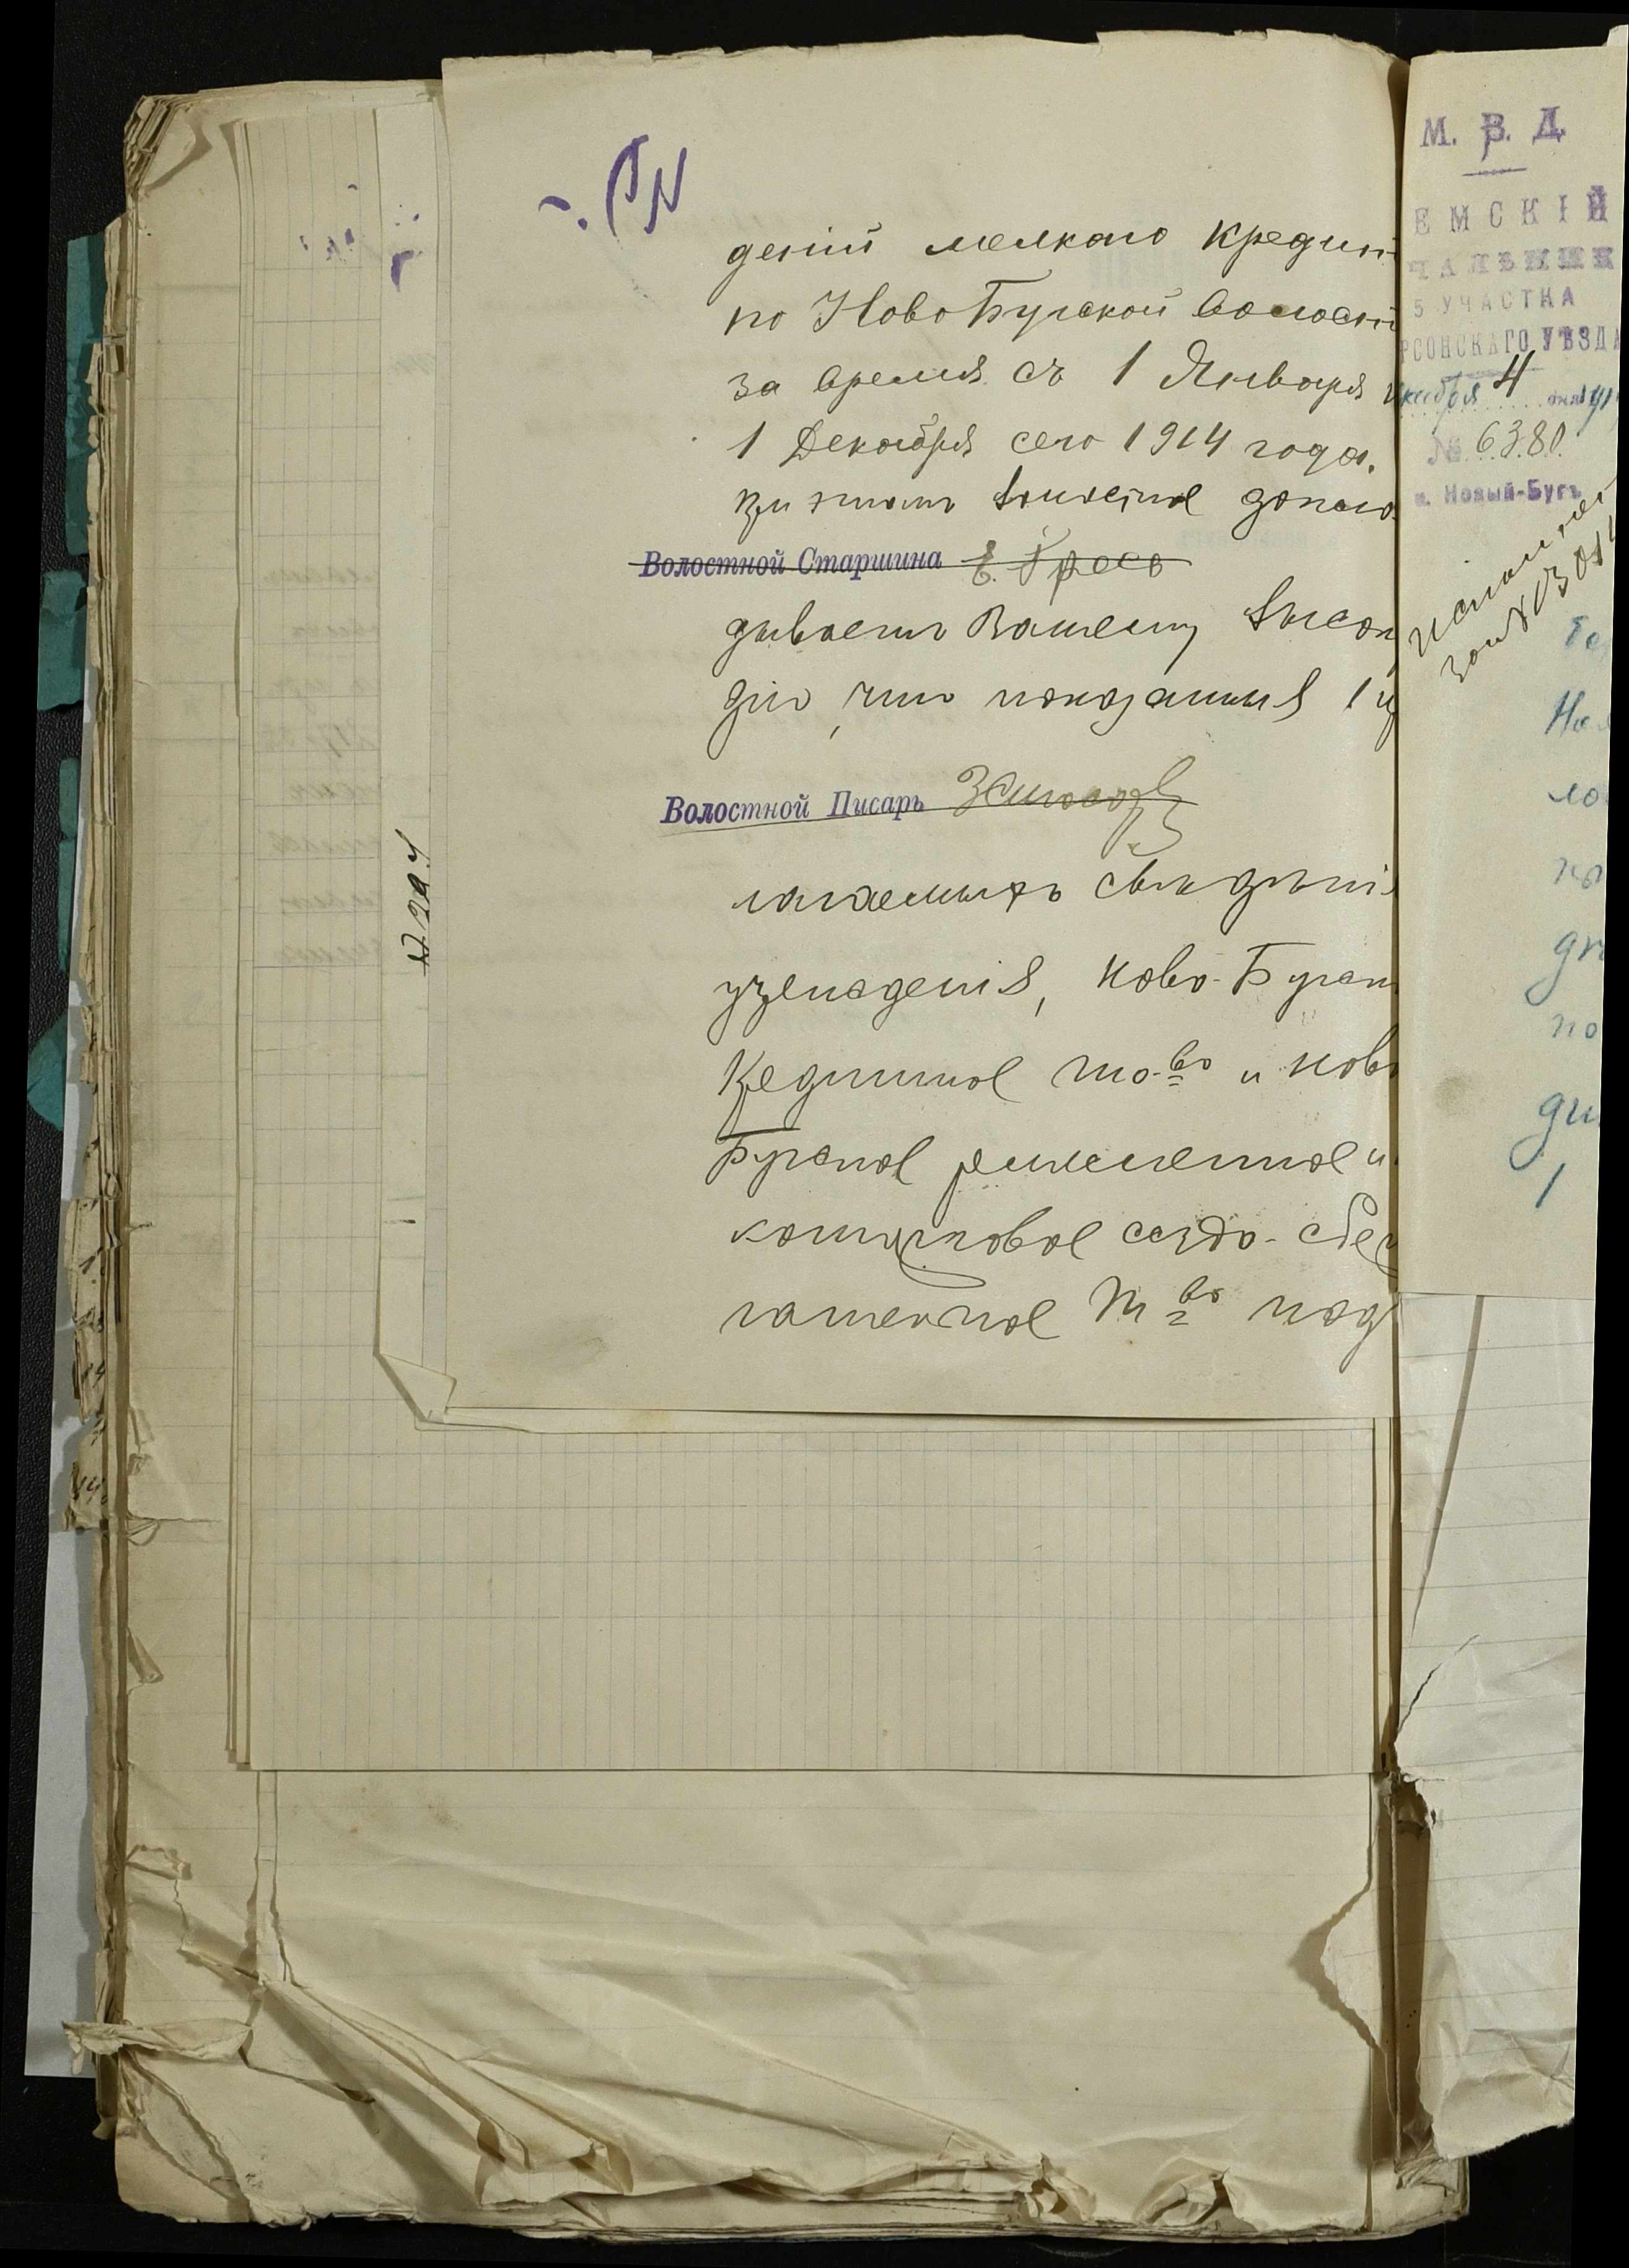 дений мелкаго кредит
по Ново Бугской волости
за время съ 1 Января
1 Декабря сего 1914 года,
при этомъ волостное докла
Волостной Старшина Е. Гросо
дываетъ Вашему Высоко
дію, что показанныя
Волостной Писарь
лагаемыхъ свѣдѣнія
учрежденія, Ново-Бугск
Кредитное то-во и Ново
Бугское ремесленное и
ссудо-сбере
гательное Т во под
М. В. Д.
ЕМСКІЙ
ЧАЛЬНИК
5 УЧАСТКА
РСОНСКАГО УѢЗДА
кабря 4 дня 191
№ 6380
м. Новый-Бугъ
На
ло
по
ди
1